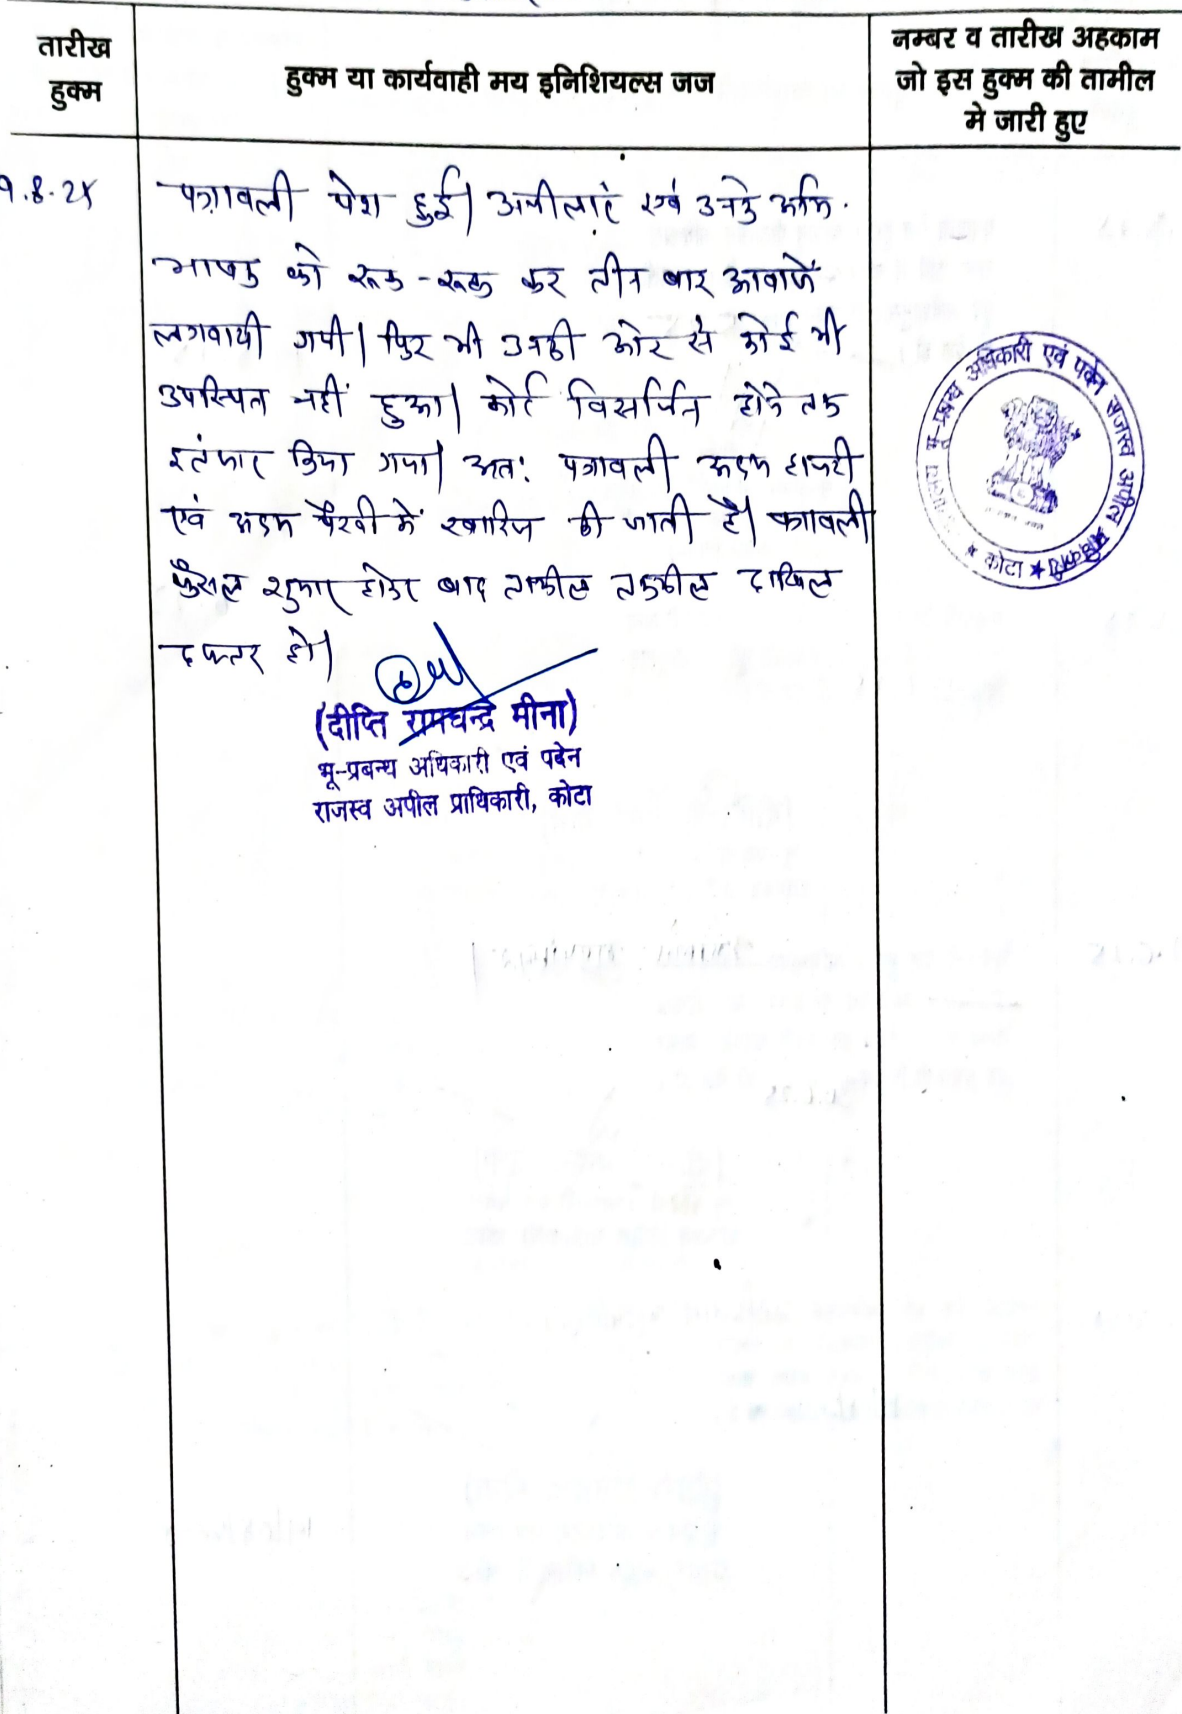 तारीख
हुक्म
हुक्म या कार्यवाही मय इनिशियल्स जज
नम्बर व तारीख अहकाम
जो इस हुक्म की तामील
मे जारी हुए
पत्रावली पेश हुई। अपीलांट एवं उनके अभि-
भाषक को रूक-रूक कर तीन बार आवाजें
लगवायी गयी। फिर भी उनकी ओर से कोई भी
उपस्थित नहीं हुआ। कोर्ट विसर्जित होने तक
इतंजार किया गया। अतः पत्रावली अदम हाजरी
एवं अदम पैरवी में खारिज की जाती है। पत्रावली
फैसल शुमार होकर बाद तामील तकमील दाखिल
दफ्तर हो।
(दीप्ति रामचन्द्र मीना)
भू-प्रबन्ध अधिकारी एवं पदेन
राजस्व अपील प्राधिकारी, कोटा
भू-प्रबन्ध अधिकारी एवं पदेन राजस्व अपील प्राधिकारी
★ कोटा ★